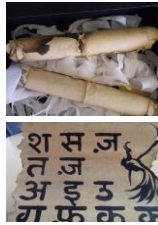 श स ज़
त ज़
अ इ ठ
ग फ़ क क